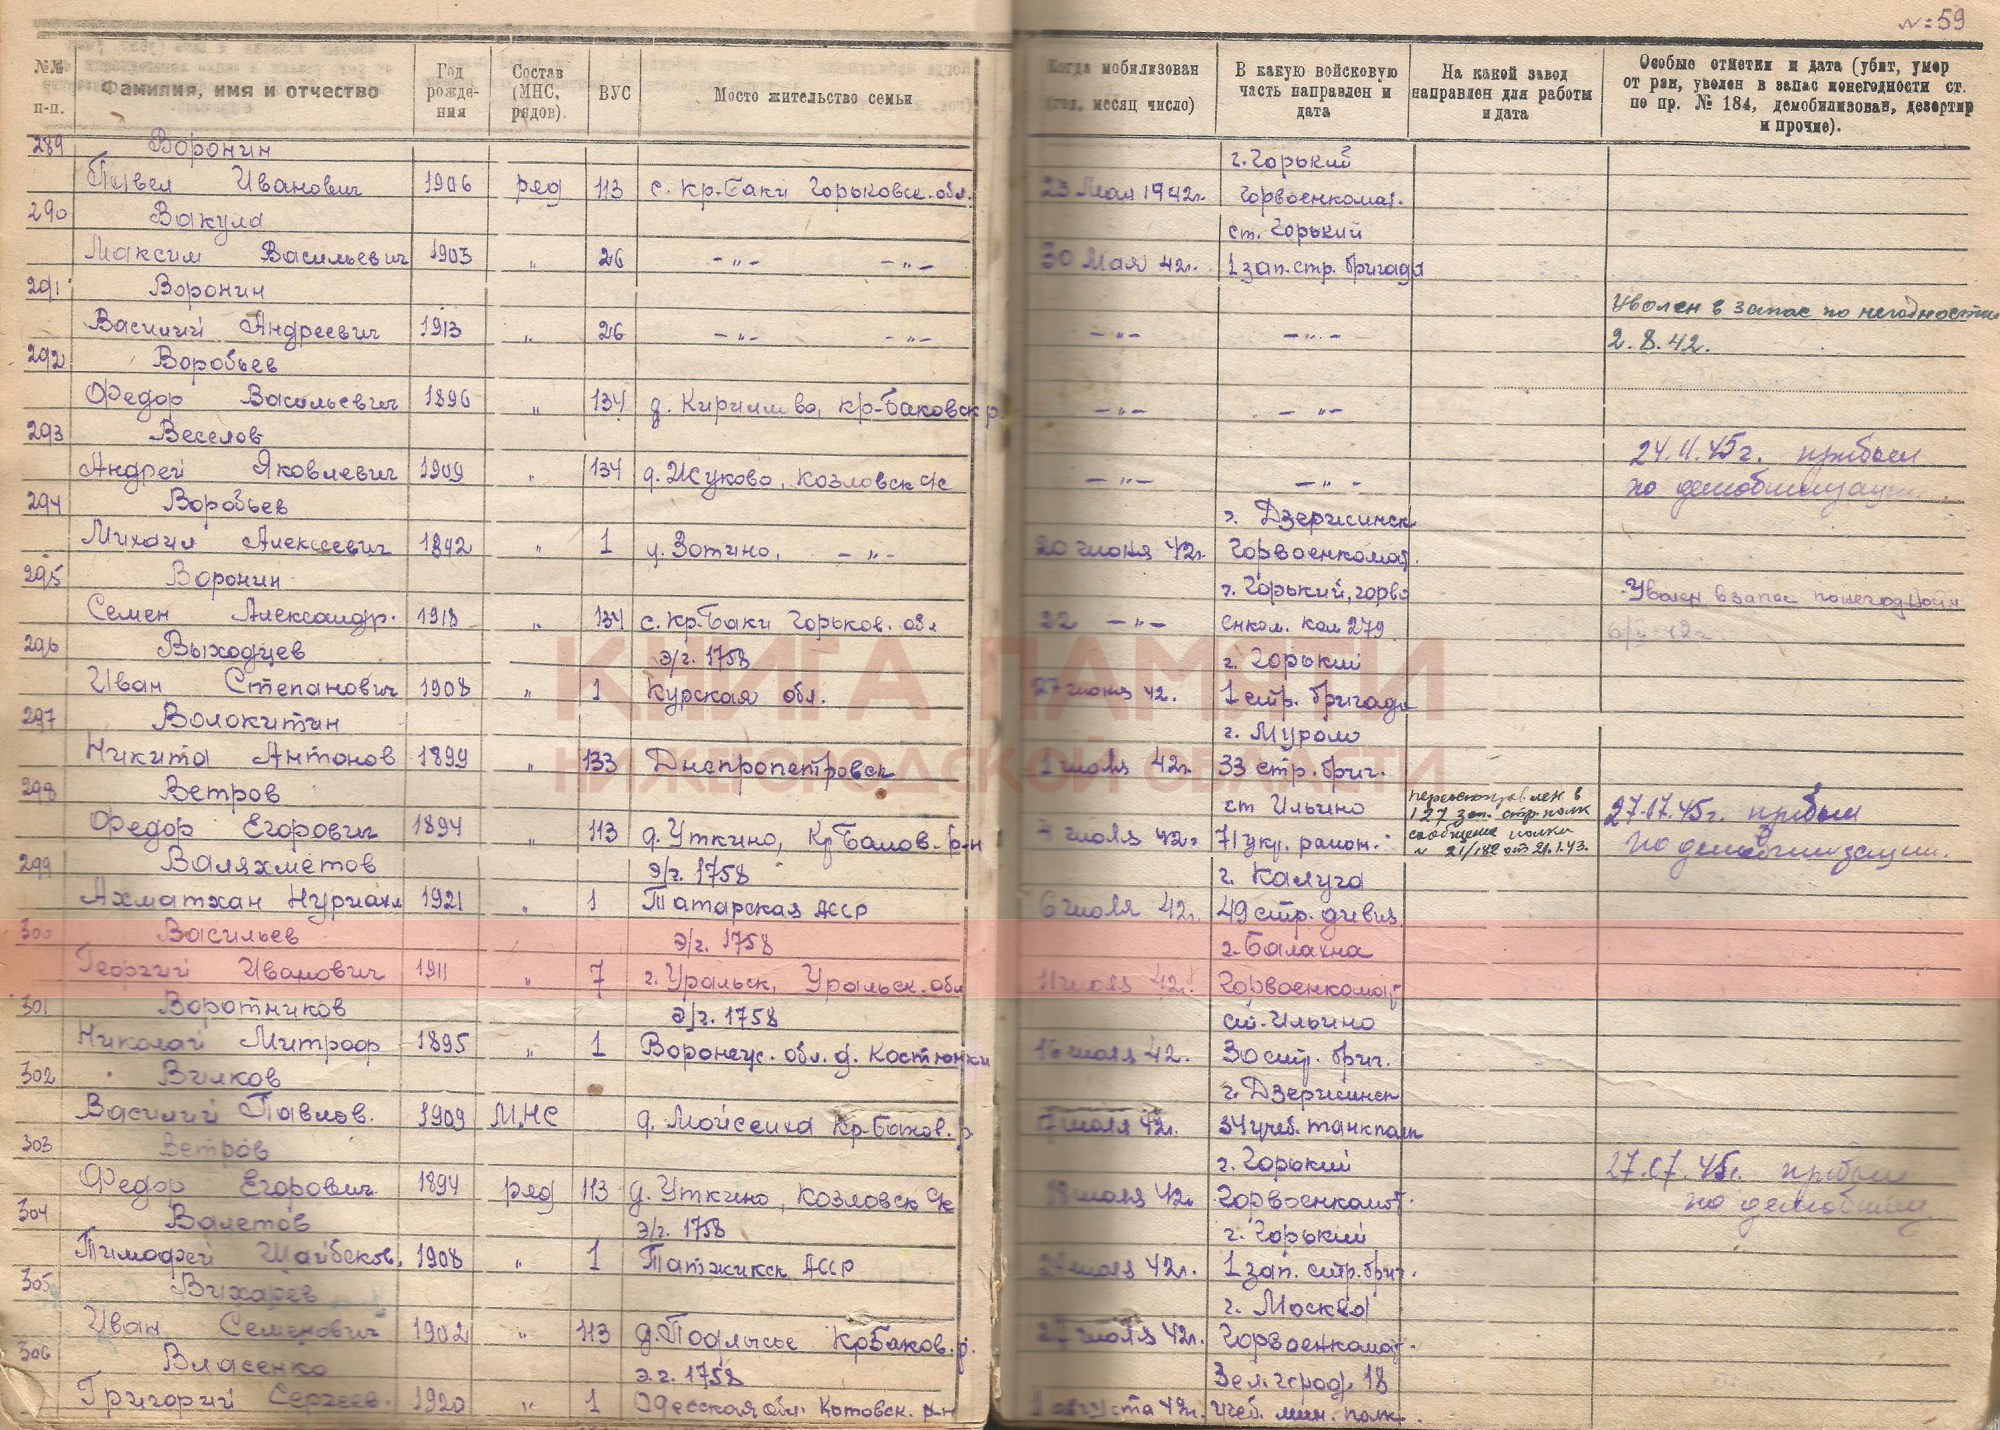 №: 59
№№ п-п. Фамилия, имя и отчество Год рождения Состав (МНС, рядов). ВУС Место жительство семьи Когда мобилизован (год, месяц число) В какую войсковую часть направлен и дата На какой завод направлен для работы и дата Особые отметки и дата (убит, умер от ран, уволен в запас понегодности ст. по пр. № 184, демобилизован, дезертир и прочие).
289 Воронин г. Горький
Павел Иванович 1906 ряд 113 с. Кр-Баки Горьковск. обл. 23 Мая 1942г. Горвоенкомат.
290 Вакула ст. Горький
Максим Васильевич 1903 " 26 -"- -"- 30 Мая 42г. 1 зап. стр. бригада
291 Воронин Уволен в запас по негодности
Василий Андреевич 1913 " 26 -"- -"- -"- -"- 2.8.42.
292 Воробьев
Федор Васильевич 1896 " 134 д. Кириллово, Кр-Баковск р -"- -"-
293 Веселов 24.11.45г. прибыл
Андрей Яковлевич 1909 " 134 д. Жуково, Козловск с/с -"- -"- по демобилизации.
294 Воробьев г. Дзержинск
Михаил Алексеевич 1892 " 1 д. Зотино, -"- 20 июня 42г. Горвоенкомат.
295 Воронин г. Горький, горво
Семен Александр. 1918 " 134 с. Кр-Баки Горьков. обл 22 -"- енком. ком 279
296 Выходцев э/г. 1758 г. Горький
Иван Степанович 1908 " 1 Курская обл. 27 июня 42. 1 стр. бригада
297 Волокитин г. Муром
Никита Антонов 1899 " 133 Днепропетровск 1 июля 42г. 33 стр. бриг.
298 Ветров ст Ильино 127 зап. стр. полк 27.07.45г. прибыл
Федор Егорович 1894 " 113 д. Уткино, Кр Баков. р-н 4 июля 42г 71 укр. район. № 21/182 от 21.1.43. по демобилизации.
299 Валяхметов э/г. 1758 г. Калуга
Ахматхан 1921 " 1 Татарская АССР 6 июля 42г. 49 стр. дивиз.
300 Васильев э/г. 1758 г. Балахна
Георгий Иванович 1911 " 7 г. Уральск, Уральск. обл 11 июля 42г. Горвоенкомат
301 Воротников э/г. 1758 ст. Ильино
Николай Митроф 1895 " 1 Воронеж. обл. д. Костюнки 16 июля 42. 30 стр. бриг.
302 Вилков г. Дзержинск
Василий Павлов. 1909 МНС д. Мойсеиха Кр-Баков. р. 17 июля 42г. 34 учеб. танк полк
303 Ветров г. Горький 27.07.45г. прибыл
Федор Егорович 1894 ряд 113 д. Уткино, Козловск с/с 18 июля 42г Горвоенкомат. по демобилиз
304 Валетов э/г. 1758 г. Горький
Тимофей Шайбеков. 1908 " 1 Татжикск АССР июля 42г. 1 зап. стр. бриг.
305 Вихарев г. Москва
Иван Семенович 1902 " 113 д. Подлысье КрБаков. р. 27 июля 42г. Горвоенкомат.
306 Власенко э.г. 1758 Зел. город. 18
Григорий Сергеев. 1920 " 1 Одесская обл. Котовск. р-н 1 августа 42г. учеб. мин. полк.
КНИГА ПАМЯТИ
НИЖЕГОРОДСКОЙ ОБЛАСТИ